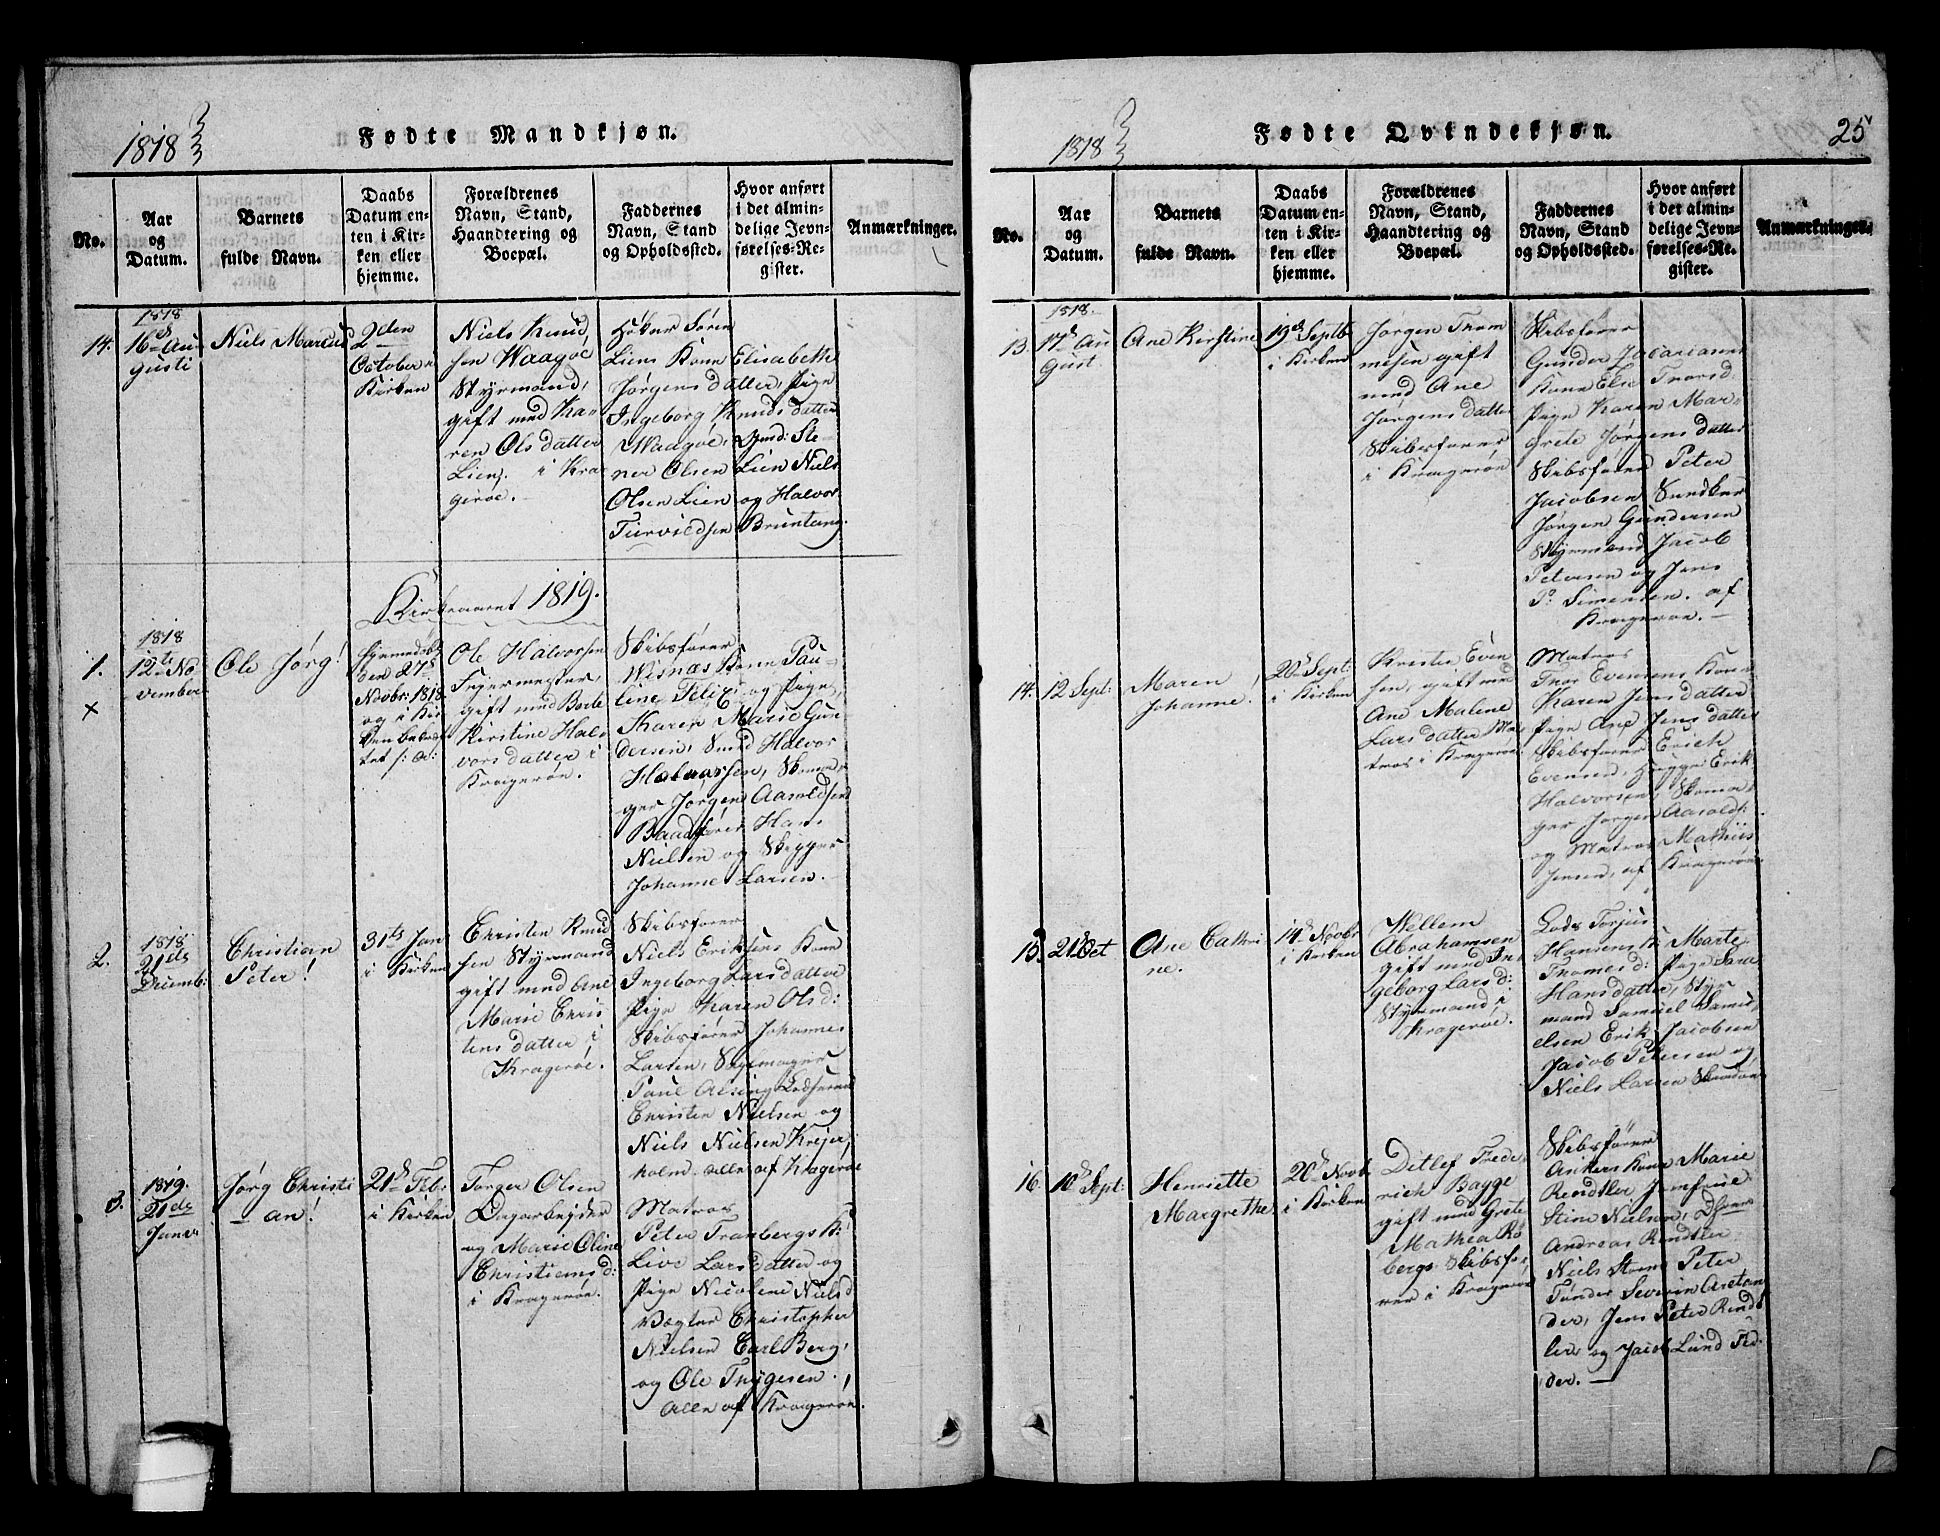 1818
Fødte Mandkjøn.
No.
Aar
og
Datum.
Barnets
fulde Navn.
Daabs
Datum en-
ten i Kir-
ken eller
hjemme.
Forældrenes
Navn, Stand,
Haandtering og
Boepæl.
Faddernes
Navn, Stand
og Opholdssted.
Hvor anført
i det almin-
delige Jevn-
førelses-Re-
gister.
Anmærkninger.
14.
1818
16d Au
gusti
Niels Marcus
2den
October i
Kirken
Niels Knud
sen Waagöe
Styrmand,
gift med Ka-
ren Olsdatter
Lien, i Kra
geröe.
Höker Sören
Liens Kone Elisabeth
Jørgensdatter, Pige
Ingeborg Knudsdatter
Waagöe, Ste-
ner Olsen Lien Niels
Olsen Lien og Halvor
Brüntang.
Kirkeaaret 1819.
1.
x
1818
12te No
vember
Ole Jørg!
Hjemmedöbt
den 27d
Novbr: 1818
og i Kir
ken
Ole Halvorsen
gift med
Kirstine Hal
vorsdatter i
Krageröe.
Skibsförer
Wisnæs Kone Pau-
line og Pige
Karen Marie Gun
dersen, Smed Halvor
ger Jørgen Aaroldsen
Hans
Nielsen og Skipper
Johanne Larsen.
2.
1818
21de
Decemb:
Christian
Peter!
31te Jan
i Kirken
Christen Knud
sen Styrmand
gift med Ane
Marie Chris
tensdatter i
Krageröe.
Skibsförer
Niels Eriksens Kone
Ingeborg Larsdatter
Pige Karen Olsd:
Skibsförer Johannes
Larsen,
Paul
Christen Nielsen og
Niels Nielsen Krejer
holm alle af Krageröe
3.
1819.
21de
Janv
Jørg Christi
-an!
21d Febr
i Kirken
Torger Olsen
Dagarbejder
og Marie Oline
Christiensd:
i Krageröe.
Matros
Peter Tranbergs K:
Live Larsdatter og
Pige Nicoline Nielsd
Christopher
Nielsen Carl Berg,
og Ole Thygesen.
Alle af Krageröe.
1818
Fødte Qvindekjøn.
25
No.
Aar
og
Datum.
Barnets
fulde Navn.
Daabs
Datum en-
ten i Kir-
ken eller
hjemme.
Forældrenes
Navn, Stand,
Haandtering og
Boepæl.
Faddernes
Navn, Stand
og Opholdssted.
Hvor anført
i det almin-
delige Jevn-
førelses-Re-
gister.
Anmærkninger.
13.
1818.
17d Au
gust
Ane Kirstine
19d Septb
i Kirken
Jørgen Thom
mesen gift
med Ane
Jørgensdatter
Skibsförer
i Krageröe
Skibsförer
Gunder
Kone Else Thorsd
Pige Karen Mar-
grete Jørgensdatter
Skibsförer Peter
Jacobsen
Jørgen Gundersen
Styrmand Jacob
Petersen og Jens
P: Simensen. af
Krageröe.
14.
12 Sept:
Maren
Johanne!
20d Sept:
i Kirken
Even
sen, gift med
Ane Malene
Larsdatter Ma
tros i Krageröe
Matros
Thor Evensens Kone
Karen Jensdatter
Pige Ane Jensdatter
Skibsförer Erich
Evensen, Erik
Halvorsen,
ger Jørgen Aarold:
og Matros Mathiis
Jensen, af Krageröe
15.
21d Oct
Ane Cathri
ne.
14d Novbr
i Kirken
Wellem
Abrahamsen
gift med In
geborg Larsd:
Styrmand i
Krageröe.
Lods Torjus
Hansens K: Marte
Thomesd: Pige Sara
Hansdatter, Styr
mand Samuel Samü
elsen Erik Jacobsen
Jacob Petersen og
Niels Larsen
16.
10d Sept:
Henriette
Margrethe
20d Novb
i Kirken
Ditlef Frede
rich Bagge
gift med Grete
Mathea Rö
bergs Skibsfö
rer i Krageröe
Skibsförer
Ankers Kone Marie
Rendtler Jomfrue
Stine Nielsen,
Andreas Rendtler
Niels Storm Peter
Tønder Severin Aretan
der, Jens Peter Rendt
ler og Jacob Lund
der.